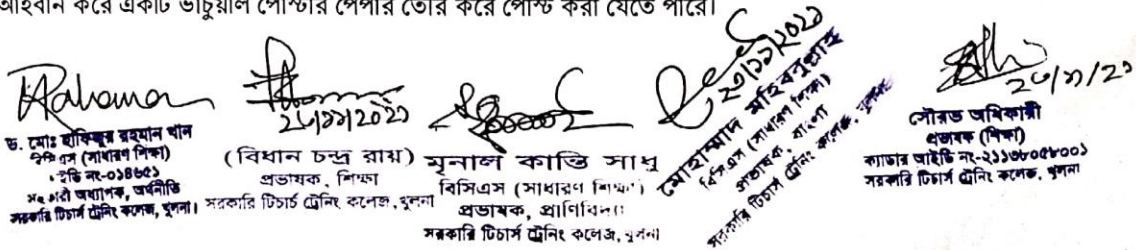 আহবান করে একটি ভার্চুয়াল পোস্টার পেপার তৈরি করে পোস্ট করা যেতে পারে।
Rahaman
ড. মোঃ হাফিজুর রহমান খান
বিসিএস (সাধারণ শিক্ষা)
আইডি নং-০১৪৬৫১
সহকারী অধ্যাপক, অর্থনীতি
সরকারি টিচার্স ট্রেনিং কলেজ, খুলনা।
(বিধান চন্দ্র রায়)
প্রভাষক, শিক্ষা
সরকারি টিচার্স ট্রেনিং কলেজ, খুলনা
মৃনাল কান্তি সাধু
বিসিএস (সাধারণ শিক্ষা)
প্রভাষক, প্রাণিবিদ্যা
সরকারি টিচার্স ট্রেনিং কলেজ, খুলনা
২৩/১১/২০২১
মোহাম্মাদ মহিবুল্লাহ
বিসিএস (সাধারণ শিক্ষা)
প্রভাষক, বাংলা
সরকারি টিচার্স ট্রেনিং কলেজ, খুলনা
২৩/১১/২১
সৌরভ অধিকারী
প্রভাষক (শিক্ষা)
ক্যাডার আইডি নং-২১১৩৮০৫৮০০১
সরকারি টিচার্স ট্রেনিং কলেজ, খুলনা